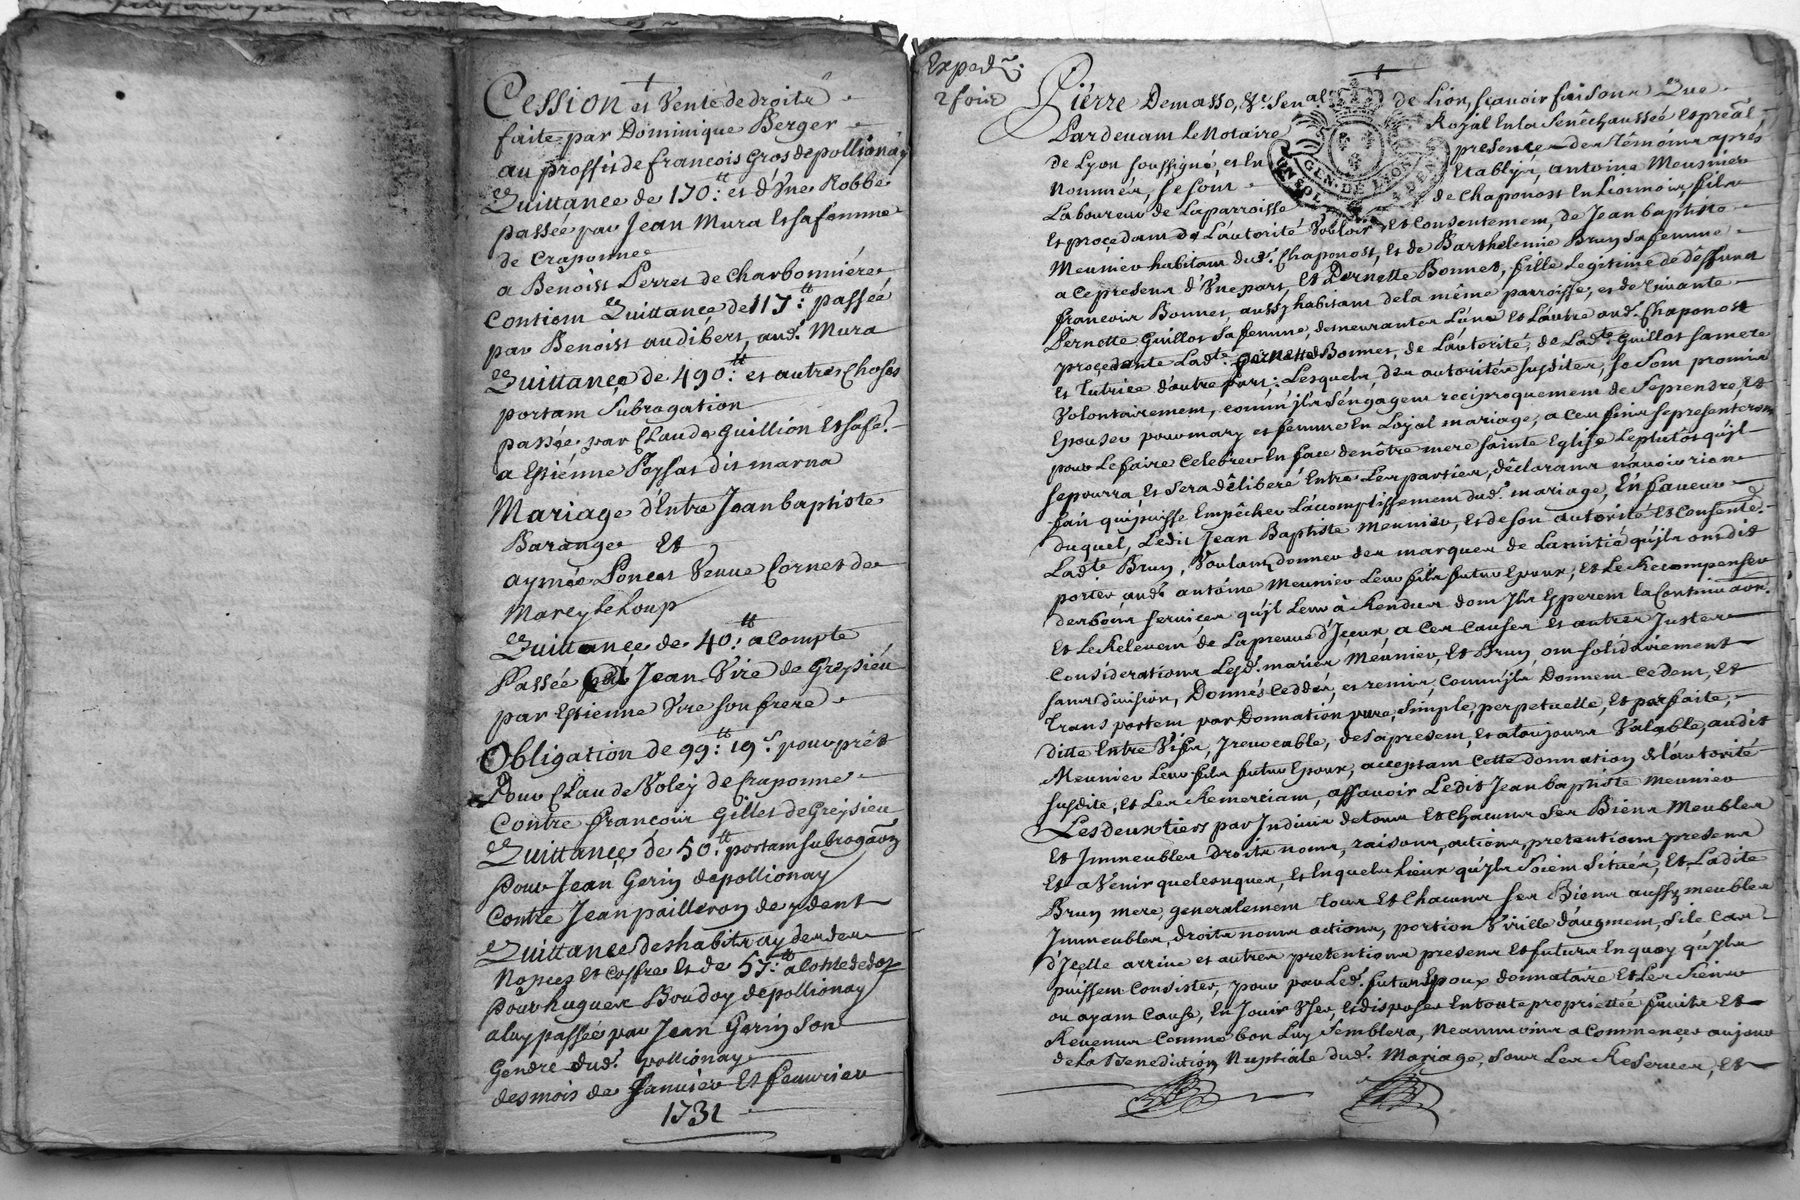 Cession et Vente de droits
faite par Dominique Berger
au proffit de françois Gros de pollionay
Quittance de 170.tt et d'Une Robbe
passée par Jean Mura Et sa femme
de Craponne
a Benoist Perret de Charbonniéres
Contient Quittance de 117.tt passée
par Benoist audibert, aud. Mura
Quittance de 490.tt et autres Choses
portant Subrogation
passée par Claude Guillion Et sa fe.
a Estiénne Poysat dit marna
Mariage d'Entre Jean baptiste
Barange Et
aymée Poncet Veuve Cornet de
Marcy le Loup
Quittance de 40.tt a Compte
Passée par Jean Vire de Greysieu
par Estienne Vire son frere
Obligation de 99.tt 19.s pour prêt
Pour Claude Voley de Craponne
Contre françois Gillet de Greysieu
Quittance de 50.tt portant subrogaõn
Pour Jean Gerin de pollionay
Contre Jean pailleron de ydent
Quittance des habits ay des de
Nopces Et Coffre Et de 57.tt a Compte de dot
Pour hugues Bouday de pollionay
a luy passée par Jean Gerin Son
Gendre dud. pollionay
des mois de Janvier Et feuvrier
1731
Exped.
2 fois
Pierre Demasso, Sen.al de Lion, sçavoir faisons Que
Pardevant le Notaire Royal En la Senéchaussée Et presal.
de Lyon soussigné, et En presence des Témoins aprés
Nommés, se sont Etablys, antoine Meusnier
Laboureur de Laparroisse de Chaponost En Lionnois, fils
Et proçedant de L'autorité Vouloir Et Consentement, de Jean baptiste
Meunier habitant dud. Chaponost, Et de Barthelemie Brun sa femme
a ce presens d'Une part, Et Pernette Bonnet, fille Legitime de déffunt
françois Bonnet, aussy habitant de la même parroisse, et de Vivante
Pernette Guillot sa femme, demeurantes L'une Et L'autre aud. Chaponost
proçedante Lad.te Pernette Bonnet, de L'autorité, de Lad.te Guillot sa mere
Et Tutrice d'autre part; Lesquels, des autorités susdites, se sont promis
Volontairement, comm'jls s'engagent reciproquement de se prendre, Et
Epouser pour mary et femme En Loyal mariage, a Ces fins se presenteront
pour Le faire Celebrer En face de nôtre mere sainte Eglise Le plutôt qu'jl
se pourra, Et sera déliberé Entre Les parties, déclarans n'avoir rien
fait qui puisse Empêcher L'acomplissement dud. mariage, En faveur
duquel, Ledit Jean Baptiste Meunier, Et de son autorité Et Consente.
Lad.te Brun, Voulant donner des marques de L'amitié qu'jls ont dit
porter aud. antoine Meunier Leur fils futur Epoux, Et Le Recompenser
des bons services qu'jl Leur à Rendus dont Jls Esperent la Continuaõn.
Et Le Relevent de La preuve d'Jçeux, a Ces Causes Et autres Justes
Considerations Lesd. mariés Meunier, Et Brun ont solidairement
sans division, Donnés Ceddés, et remis, Comm'jls Donnent Cedent, Et
Transportent par Donnation pure, simple, perpetuelle, Et parfaite,
ditte Entre Vifs, Jrevocable, des a present, Et a toujours Valable, audit
Meunier Leur fils futur Epoux, acceptant Cette donnation de L'autorité
susdite, Et Les Remerciant, assavoir Ledit Jean Baptiste Meunier
Les deux tiers par Jndivis de tous Et chacuns Ses Biens Meubles
Et Jmmeubles droits noms, raisons, actions, pretentions presens
Et a Venir quelconques, Et En quels Lieux qu'jls Soient Situés, Et Ladite
Brun mere, generalement tous Et Chacuns ses Biens aussy meubles
Jmmeubles, droits noms actions, portion Virille d'augment, si le Cas
d'Jcelle arrive et autres pretentions presens Et futurs En quoy qu'jls
puissent Consister, pour par Led. futur Epoux donnataire Et Les siens
ou ayant Cause, En Jouir User, Et disposer En toute proprietté fruits Et
Revenus Comme bon Luy semblera, Neanmoins a Commencer au jour
de La Benediction Nuptiale dud. Mariage, sous Les Reserves, Et